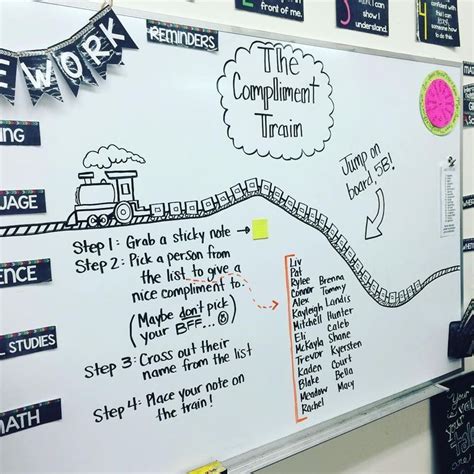 EWORK
REMINDERS
front of me.
I can
show I
understand.
confident with
this if I can
someone how
to do this.
The
Compliment
Train
Jump on
board, 5B!
ING
UAGE
ENCE
L STUDIES
MATH
Step 1: Grab a sticky note →
Step 2: Pick a person from
the list to give a
nice compliment to.
(Maybe don't pick
your BFF...)
Step 3: Cross out their
name from the list
Step 4: Place your note on
the train!
Liv
Pat
Rylee Brenna
Connor Tommy
Alex
Kayleigh Landis
Mitchell Hunter
Eli caleb
McKayla Shane
Trevor Kyersten
Kaden Court
Blake Bella
Meadow Macy
Rachel